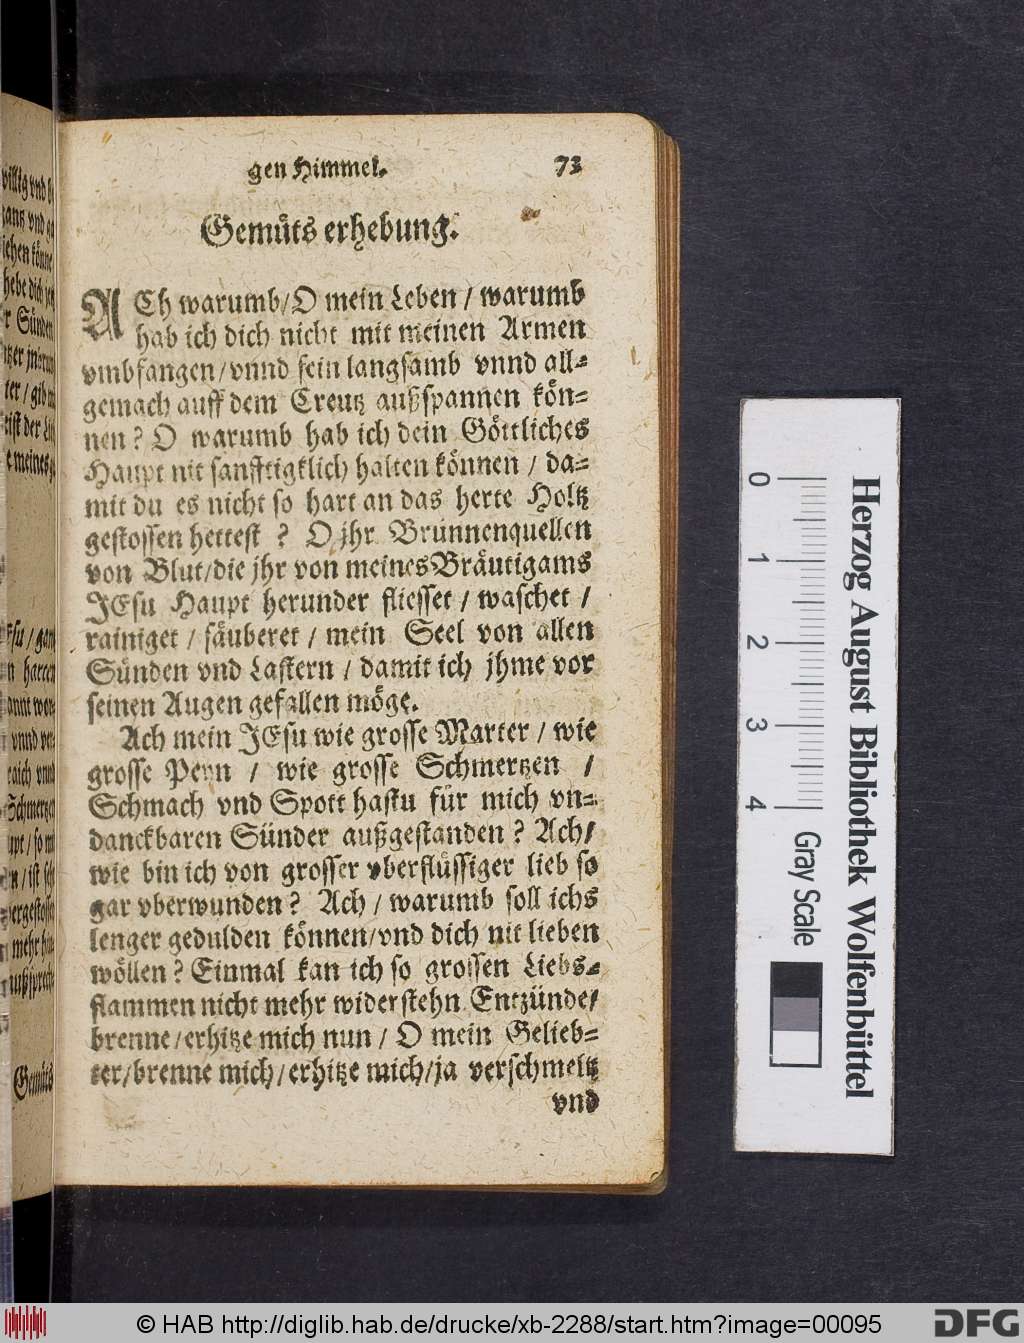 gen Himmel. 73
Gemüts erhebung.
ACh warumb/O mein Leben / warumb
hab ich dich nicht mit meinen Armen
vmbfangen/vnnd fein langsamb vnnd all-
gemach auff dem Creutz außspannen kön-
nen? O warumb hab ich dein Göttliches
Haupt nit sanfftigklich halten können / da-
mit du es nicht so hart an das herte Holtz
gestossen hettest ? O jhr Brunnenquellen
von Blut/die jhr von meines Bräutigams
JEsu Haupt herunder fliesset / waschet /
rainiget / säuberet / mein Seel von allen
Sünden vnd Lastern / damit ich jhme vor
seinen Augen gefallen möge.
Ach mein JEsu wie grosse Marter / wie
grosse Peyn / wie grosse Schmertzen /
Schmach vnd Spott hastu für mich vn-
danckbaren Sünder außgestanden? Ach/
wie bin ich von grosser vberflüssiger lieb so
gar vberwunden? Ach / warumb soll ichs
lenger gedulden können/vnd dich nit lieben
wöllen? Einmal kan ich so grossen Liebs-
flammen nicht mehr widerstehn. Entzünde/
brenne/erhitze mich nun / O mein Gelieb-
ter/brenne mich/erhitze mich/ja verschmeltz
vnd
willig vnd
Sünden
gib
ist der
meines
harten
vnnd
vnnd
Schmertzen
ist
mehr
Gemüts
0 1 2 3 4
Gray Scale
Herzog August Bibliothek Wolfenbüttel
© HAB http://diglib.hab.de/drucke/xb-2288/start.htm?image=00095
DFG